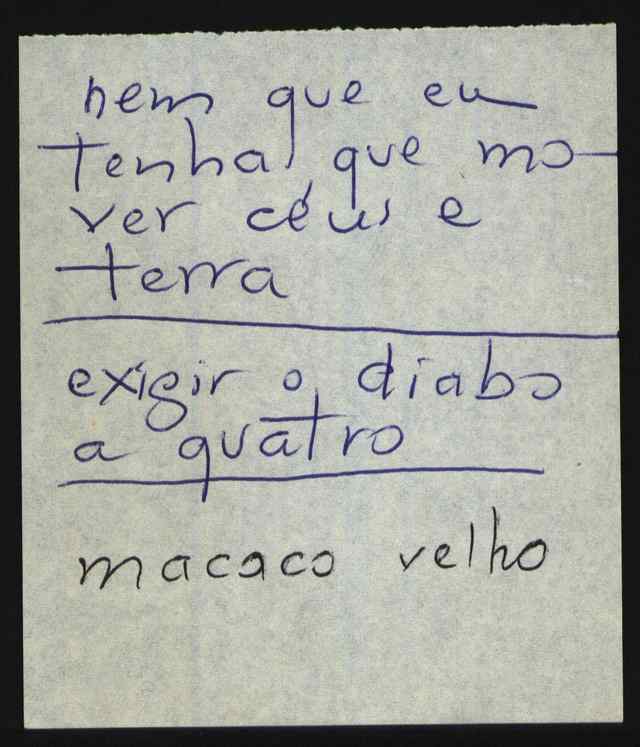 nem que eu
tenha que mo-
ver céus e
terra
exigir o diabo
a quatro
macaco velho